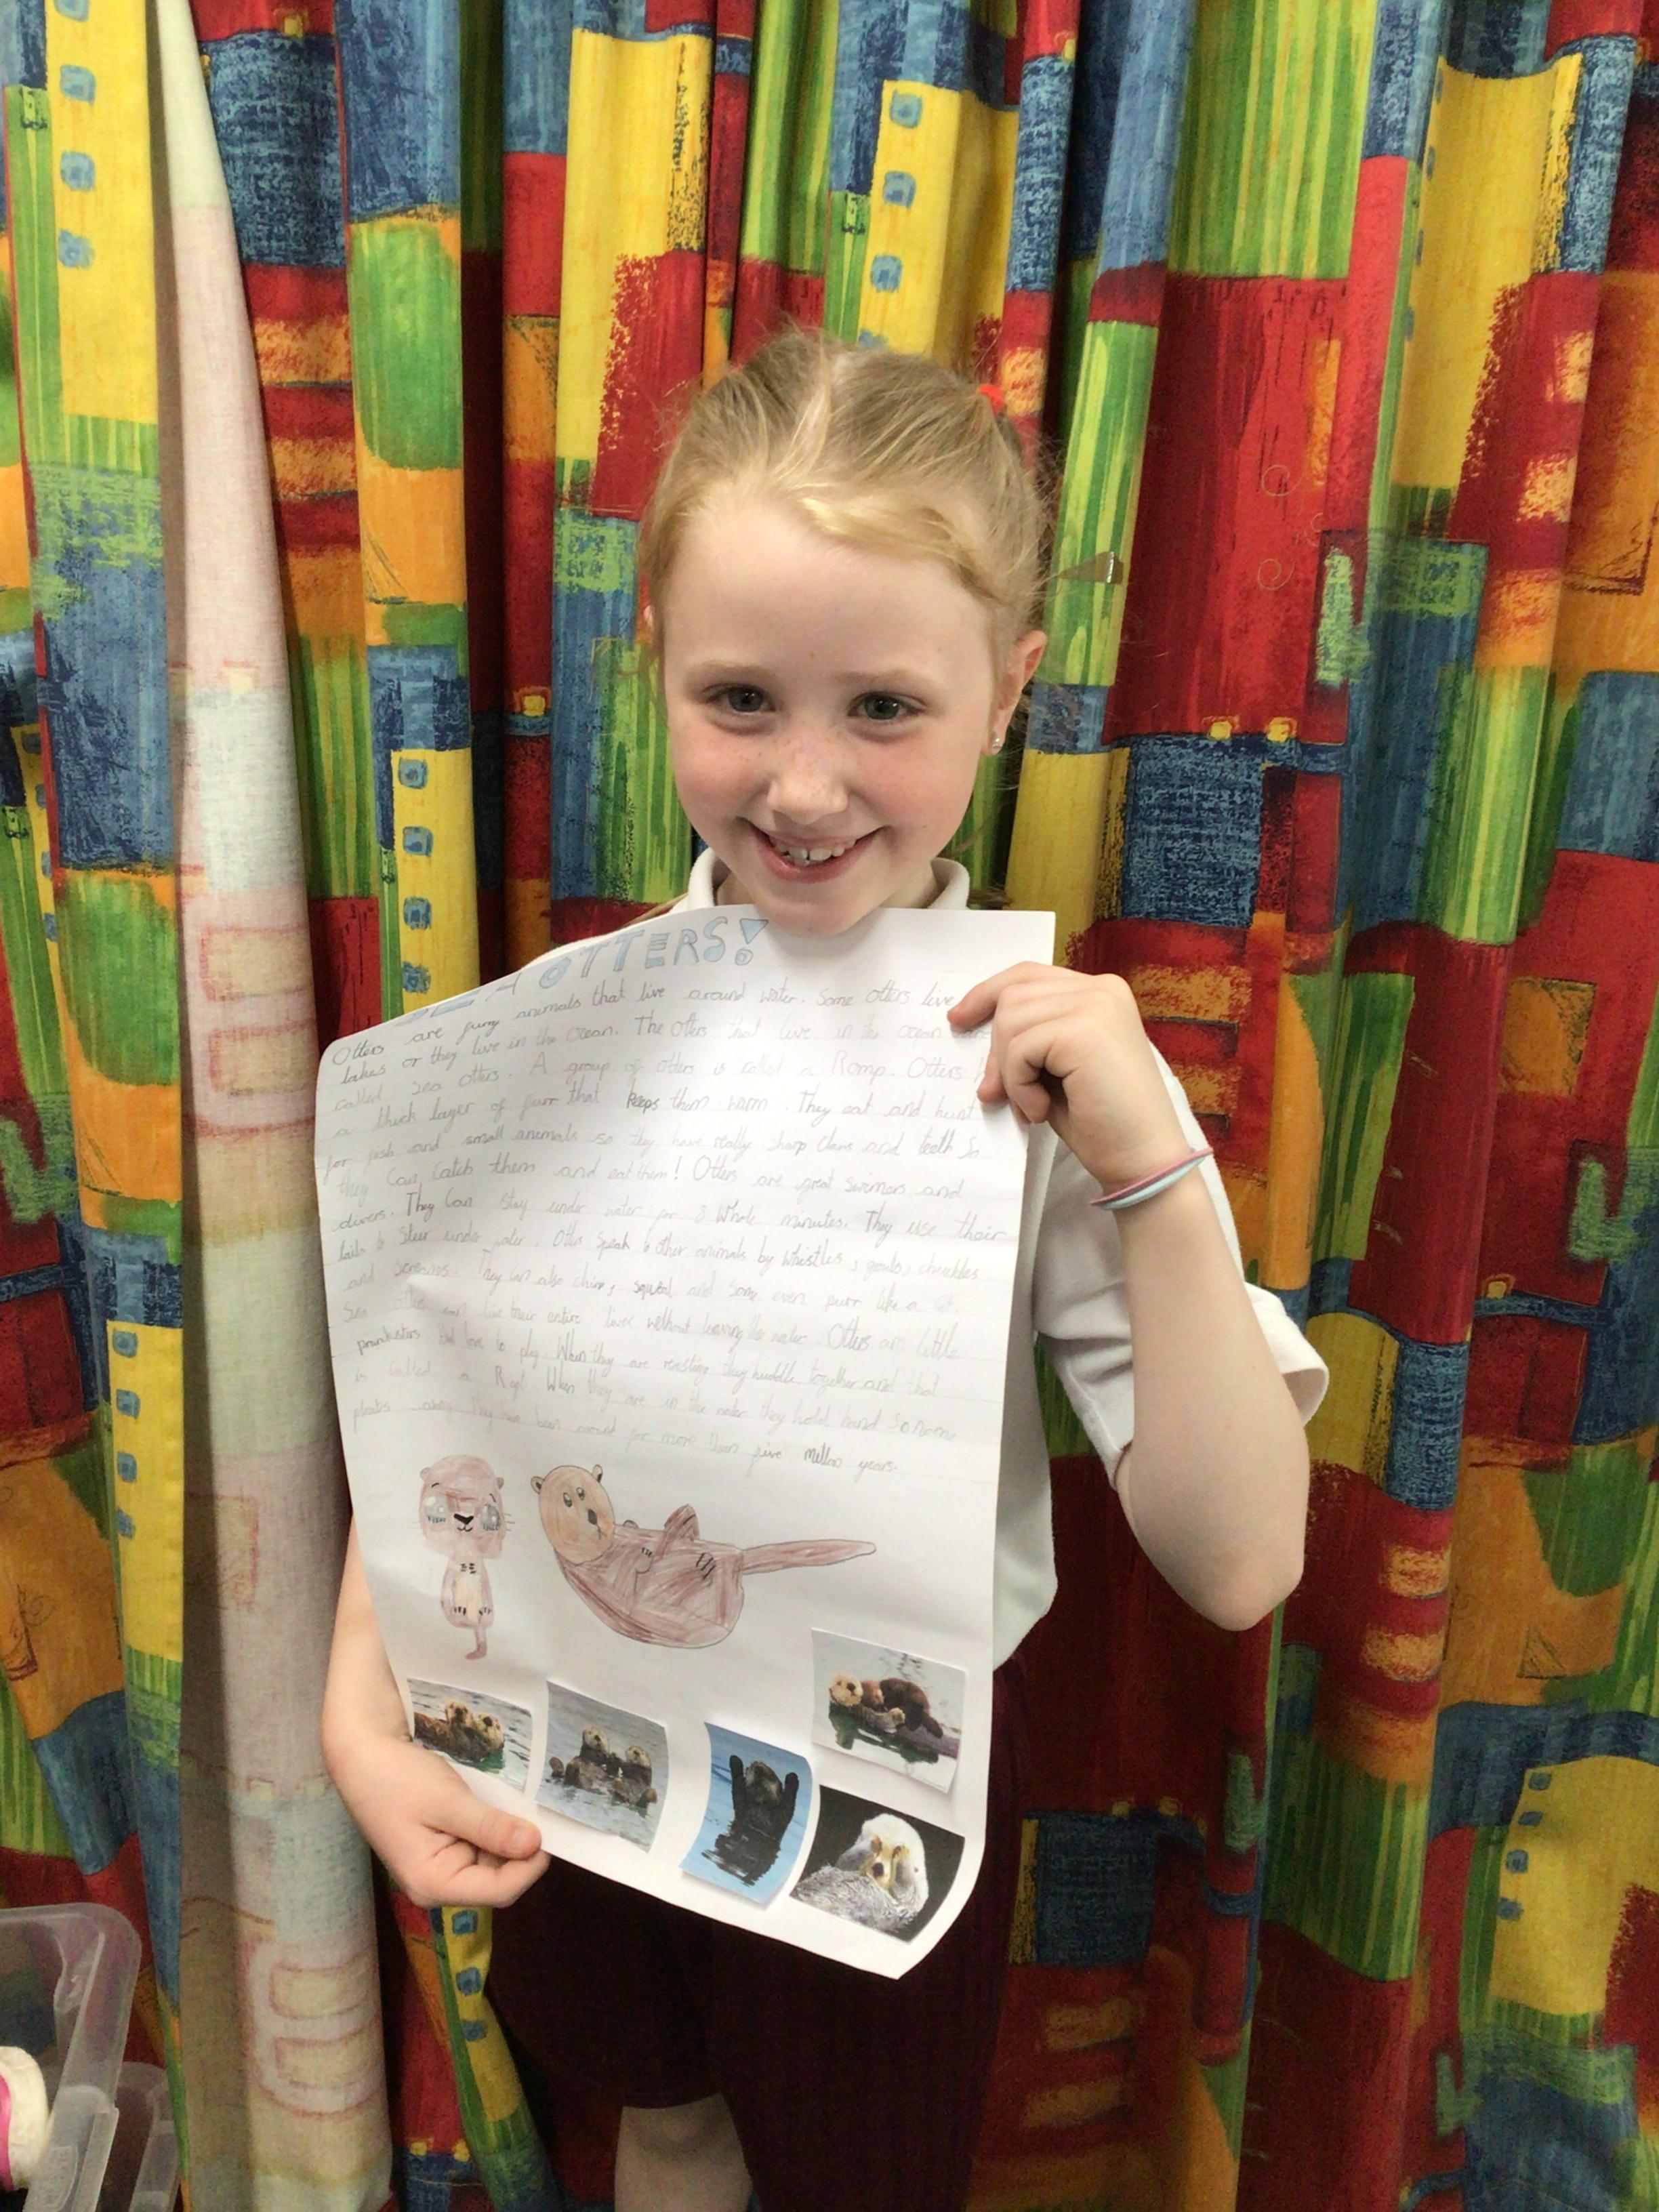 SEA OTTERS!
Otters are furry animals that live around water. Some otters live
lakes or they live in the ocean. The otters that live in the ocean are
called sea otters. A group of otters is called a Romp. Otters
a thick layer of furr that keeps them warm. They eat and hunt
for fish and small animals so they have really sharp claws and teeth So
they can catch them and eat them! Otters are great swimers and
divers. They can stay under water for 8 whole minutes. They use their
tails to steer under water. Otters speak to other animals by whistles, chuckles
and screams. They can also chirp, squeal and some even purr like a
Sea otters can live their entire lives without leaving the water. Otters are little
pranksters but love to play. When they are resting they huddle together and that
is called a Raft. When they are in the water they hold hand so no one
floates away. They have been around for more than five years.